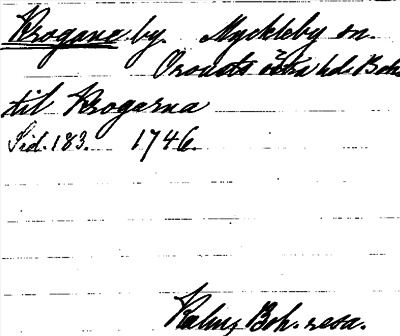 Krogane by. Myckleby sn.
Orousts östra hd. Boh.
til Krogarna
Sid. 183. 1746.
Kalms Boh. resa.